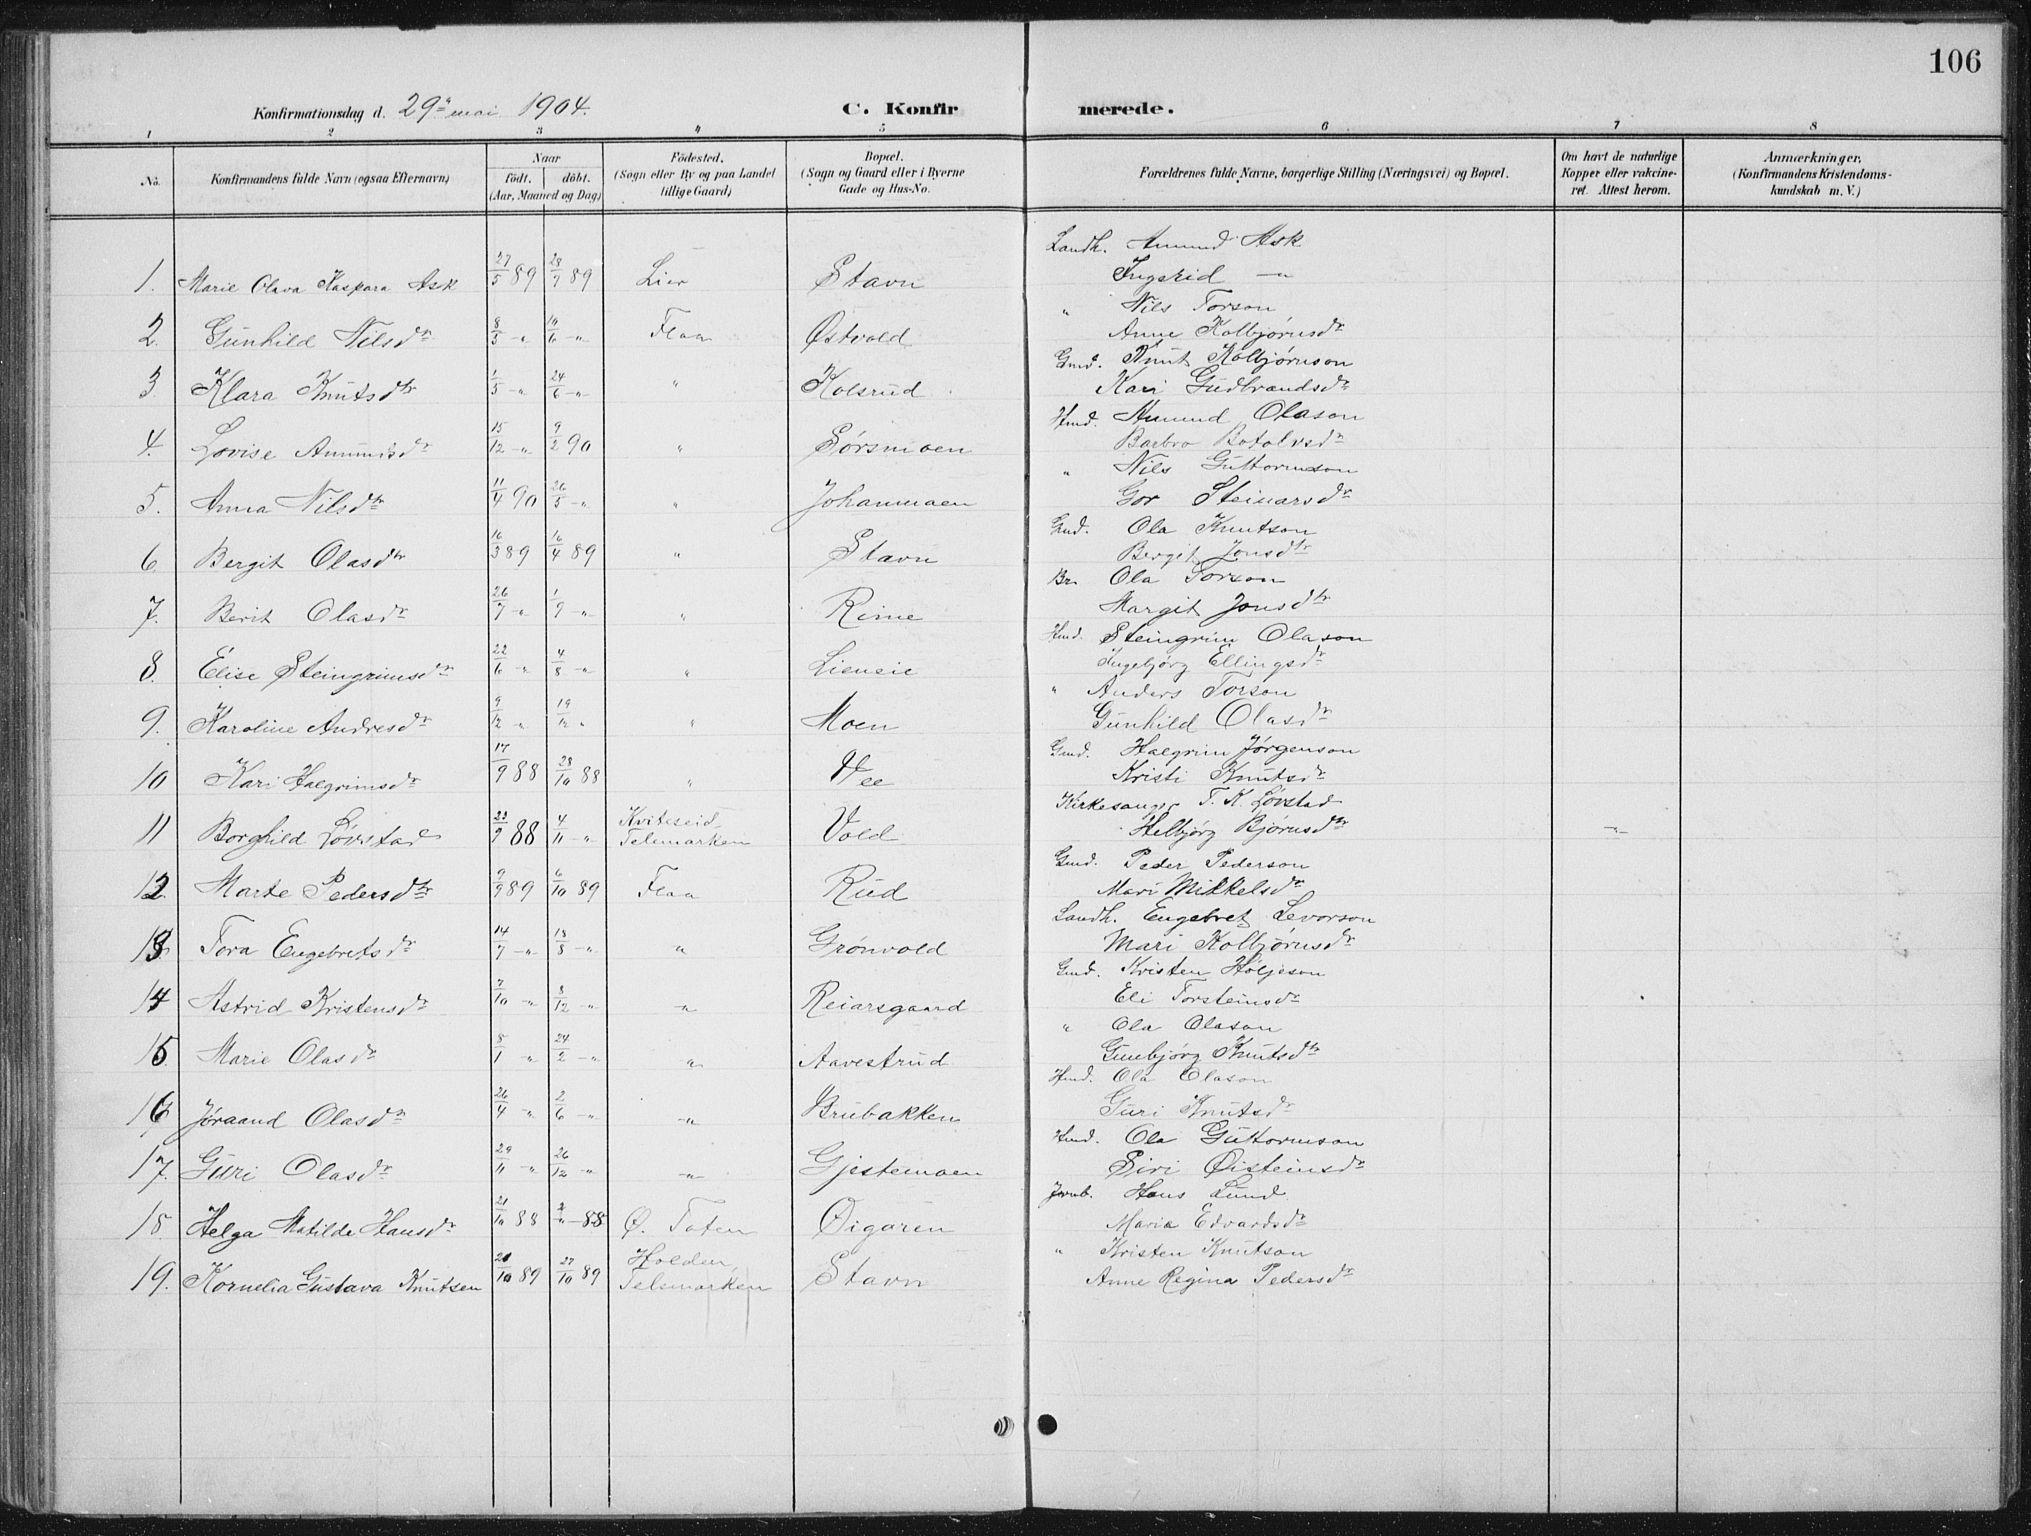 106
Konfirmationsdag d. 29de mai 1904.
C. Konfirmerede.
1 2 3 4 5 6 7 8
No. Konfirmandens fulde Navn (ogsaa Efternavn) Naar födt. döbt. (Aar, Maaned og Dag) Födested. (Sogn eller By og paa Landet tillige Gaard) Bopæl. (Sogn og Gaard eller i Byerne Gade og Hus-No. Forældrenes fulde Navne, borgerlige Stilling (Næringsvei) og Bopæl. Om havt de naturlige Kopper eller vakcineret. Attest herom. Anmærkninger. (Konfirmandens Kristendomskundskab m. V.)
1. Marie Olava Kaspara Ask 27/5 89 28/7 89 Lier Stavn Landh. Amund Ask
Ingerid —"
2. Gunhild Nilsdtr 8/5 -"- 10/6 -"- Flaa Østvold " Nils Torson
Anne Kolbjørnsdtr
3. Klara Knutsdtr 1/5 -"- 24/6 -"- " Kolsrud Gmd. Knut Kolbjørnson
Kari Gudbrandsdtr
4. Lovise Amundsdtr 15/12 -"- 9/2 90 " Sørsmoen Hmd. Amund Olason
Barbro Botolvsdtr
5. Anna Nilsdtr 11/4 90 26/5 -"- " Johanmoen " Nils Guttormson
Gor Steinarsdtr
6. Bergit Olasdtr 16/3 89 16/4 89 " Stavn Gmd. Ola Knutson
Bergit Jonsdtr
7. Berit Olasdtr 26/7 -"- 1/9 -"- " Reime Br. Ola Torson
Margit Jonsdtr
8. Elise Steingrimsdtr 22/6 -"- 4/8 -"- " Lieneie Hmd. Steingrim Olason
Ingebjørg Ellingsdtr
9. Karoline Andresdtr 9/12 -"- 19/12 " " Moen " Anders Torson
Gunhild Olasdtr
10 Kari Halgrimsdtr 17/9 88 28/10 88 " Vee Gmd. Halgrim Jørgenson
Kristi Knutsdtr
11 Borghild Løvstad 23/9 88 4/11 -"- Kviteseid Telemarken Vold Kirkesanger T. K. Løvstad
Helbjørg Bjørnsdtr -"-
12. Marte Pedersdtr 9/9 89 6/10 89 Flaa Rud Gmd. Peder Pederson
Mari Mikkelsdtr
13 Tora Engebretsdtr 14/7 -"- 18/8 -"- " Grønvold Landh. Engebret Levorson
Mari Kolbjørnsdtr
14 Astrid Kristensdtr 7/10 -"- 8/12 -"- -"- Reiarsgaard Gmd. Kristen Høljeson
Eli Torsteinsdtr
15. Marie Olasdtr 8/1 -"- 24/2 -"- " Aavestrud " Ola Olason
Gunbjørg Knutsdtr
16 Jøraand Olasdtr 26/4 -"- 2/6 -"- -"- Brubakken Hmd. Ola Olason
Guri Knutsdtr
17. Guri Olasdtr 29/11 -"- 26/12 -"- -"- Gjestemoen Hmd. Ola Guttormson
Siri Øisteinsdtr
18 Helga Matilde Hansdtr 21/10 88 2/11 - 88 Ø. Toten Øigaren Jrnb. Hans Lund
Maria Edvardsdtr
19. Kornelia Gustava Knutsen 20/10 89 27/10 89 Holden, Telemarken Stavn " Kristen Knutson
Anne Regina Pedersdtr